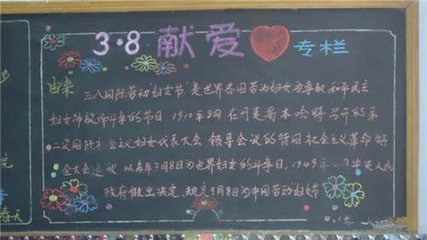 3·8 献爱 专栏
由来:
三八国际劳动妇女节"是世界各国劳动妇女为争取和平民主
妇女解放而斗争的节日 1910年8月 在丹麦哥本哈根召开的第
二次国际 会议妇女代表大会 领导会议的德国 社会主义革命
全大会建议 以每年3月8日为世界妇女的斗争日,1949年 中央人民
政府做出决定 规定3月8日为中国劳动妇女节
春天